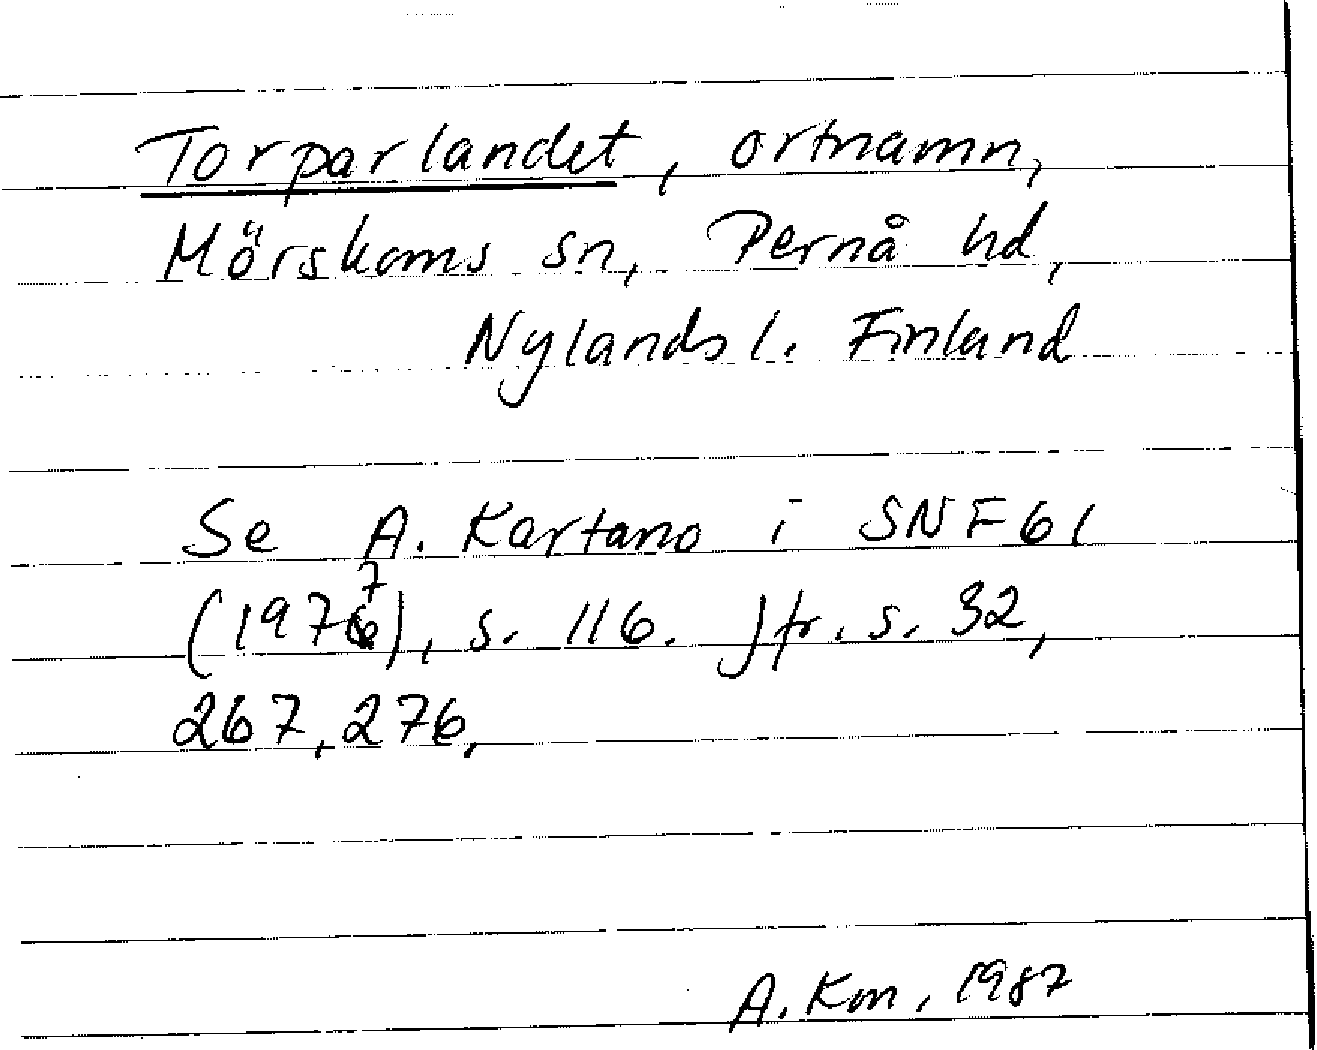 Torparlandet, ortnamn,
Mörskoms sn, Pernå hd,
Nylands l. Finland
Se A. Kartano i SNF 61
(1977), s. 116. Jfr. s. 32,
267, 276.
A. Km, 1987